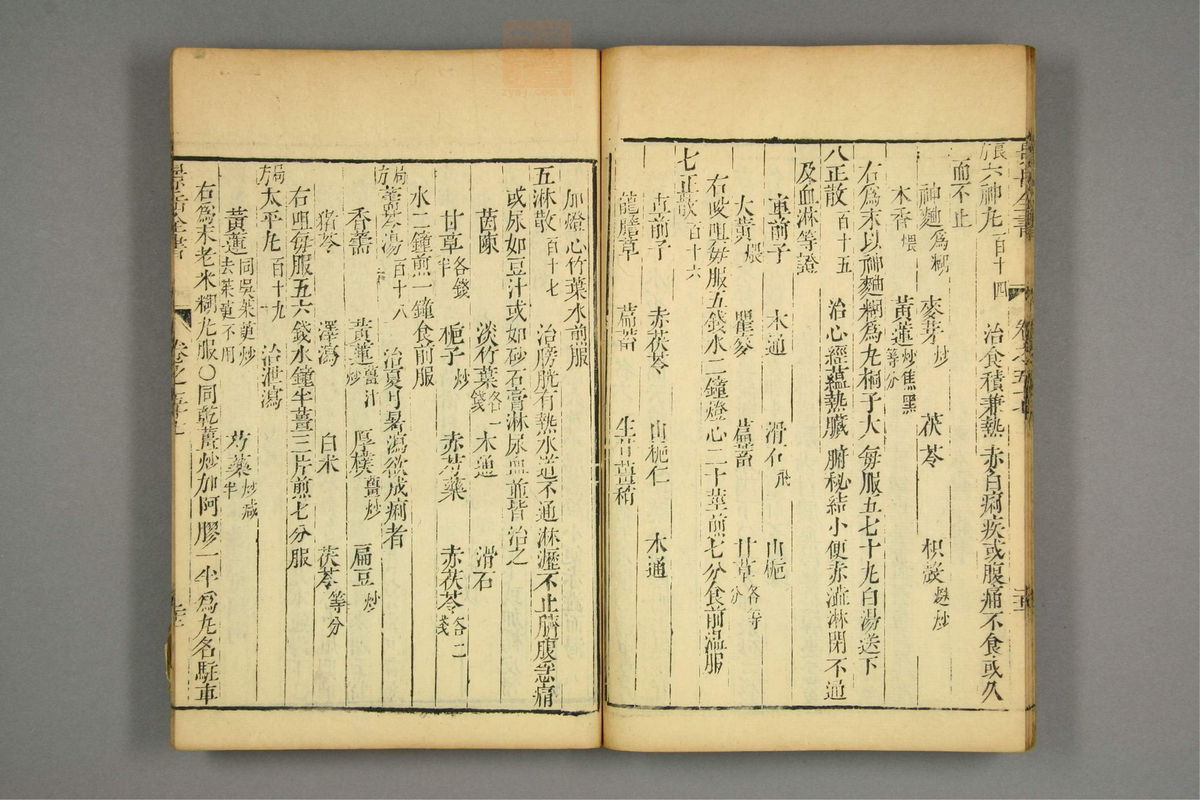 良方六神丸百十四 治食積兼熱赤白痢疾或腹痛不食或久
而不止
神麯爲糊 麥芽炒 茯苓 枳殼麩炒
木香煨 黃連炒焦黑等分
右爲末以神麯糊爲丸桐子大每服五七十丸白湯送下
八正散百十五 治心經蘊熱臟腑秘結小便赤澁淋閉不通
及血淋等證
車前子 木通 滑石飛 山梔
大黃煨 瞿麥 萹蓄 甘草各等分
右㕮咀每服五錢水二鐘燈心二十莖煎七分食前溫服
七正散百十六
車前子 赤茯苓 山梔仁 木通
龍膽草 萹蓄 生甘草稍
加燈心竹葉水煎服
五淋散百十七 治膀胱有熱水道不通淋瀝不止臍腹急痛
或尿如豆汁或如砂石膏淋尿血並皆治之
茵陳 淡竹葉各一錢 木通 滑石
甘草各錢半 梔子炒 赤芍藥 赤茯苓各二錢
水二鐘煎一鐘食前服
局方薷苓湯百十八 治夏月暑瀉欲成痢者
香薷 黃連薑汁炒 厚樸薑炒 扁豆炒
豬苓 澤瀉 白朮 茯苓等分
右咀每服五六錢水鐘半薑三片煎七分服
局方太平丸百十九 治泄瀉
黃連同吳茱萸炒去茱萸不用 芍藥炒減半
右爲末老米糊丸服〇同乾薑炒加阿膠一半爲丸名駐車
景岳全書 卷之五十七